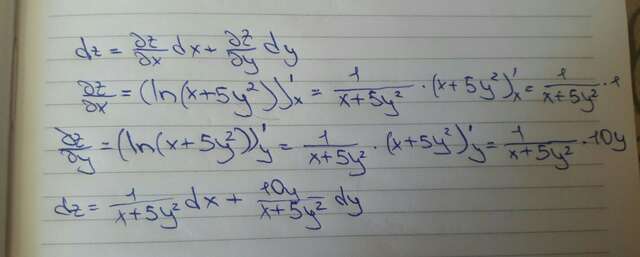 dz = ∂z/∂x dx + ∂z/∂y dy
∂z/∂x = (ln(x+5y²))'ₓ = 1/(x+5y²) · (x+5y²)'ₓ = 1/(x+5y²) · 1
∂z/∂y = (ln(x+5y²))'y = 1/(x+5y²) · (x+5y²)'y = 1/(x+5y²) · 10y
dz = 1/(x+5y²) dx + 10y/(x+5y²) dy